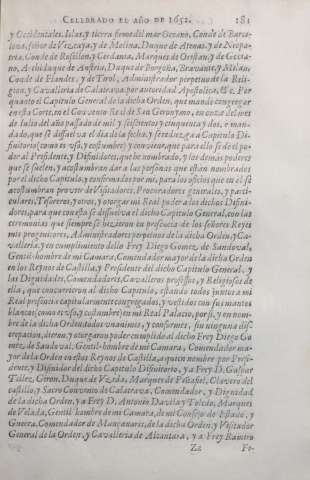 CELEBRADO EL AÑO DE 1652. 181
y Occidentales, Islas, y tierra firme del mar Oceano, Conde de Barce-
lona, señor de Vizcaya, y de Molina, Duque de Atenas, y de Neopa-
tria, Conde de Rusellon, y Cerdania, Marques de Oristan, y de Gocea-
no, Archiduque de Austria, Duque de Borgoña, Bravante, y Milan,
Conde de Flandes, y de Tirol, Administrador perpetuo de la Reli-
gion, y Cavalleria de Calatrava por autoridad Apostolica, &c. Por
quanto el Capitulo General de la dicha Orden, que mandè congregar
en esta Corte, en el Convento Real de San Geronymo, en onze del mes
de Iulio del año passado de mil y seiscientos y cinquenta y dos, è man-
dado, que se dissuelva el dia de la fecha, y se reduzga a Capitulo Di-
finitorio (como es vso, y costumbre) y conviene, que para ello se dè el po-
der al Presidente, y Difinidores, que he nombrado, y los demàs poderes
que se suelen, y acostumbran dar a las personas que estàn nombradas
por el dicho Capitulo, y confirmadas por mi, para los oficios que en èl se
acostumbran proveer de Visitadores, Procuradores generales, y parti-
culares, Tesoreros, y otros, y otorgar mi Real poder a los dichos Difini-
dores, para que con esto se dissuelva el dicho Capitulo General, con las
ceremonias que siempre se hizieron en presencia de los señores Reyes
mis progenitores, Administradores perpetuos de la dicha Orden, y Ca-
valleria: y en cumplimiento dello Frey Diego Gomez de Sandoval,
Gentil-hombre de mi Camara, Comendador mayor de la dicha Orden
en los Reynos de Castilla, y Presidente del dicho Capitulo General, y
las Dignidades, Comendadores, Cavalleros professos, y Religiosos de
ella, que concurrieron al dicho Capitulo, estando todos juntos a mi
Real presencia capitularmente congregados, y vestidos con sus mantos
blancos (como es vso, y costumbre) en mi Real Palacio, por sì, y en nom-
bre de la dicha Orden, todos vnanimes, y conformes, sin ninguna dis-
crepacion, dieron, y otorgaron poder cumplido al dicho Frey Diego Go-
mez de Sandoval, Gentil-hombre de mi Camara, Comendador ma-
yor de la Orden en estos Reynos de Castilla, a quien nombrè por Presi-
dente, y Difinidor del dicho Capitulo Difinitorio, y a Frey D. Gaspar
Tellez, Giron, Duque de Vzeda, Marques de Peñafiel, Clavero del
castillo, y Sacro Convento de Calatrava, Comendador, y Dignidad
de la dicha Orden, y a Frey D. Antonio Davila y Toledo, Marques
de Velada, Gentil-hombre de mi Camara, de mi Consejo de Estado, y
Guerra, Comendador de Mançanares, de la dicha Orden, y Visitador
General de la Orden, y Cavalleria de Alcantara, y a Frey Ramiro
Zz Fe-